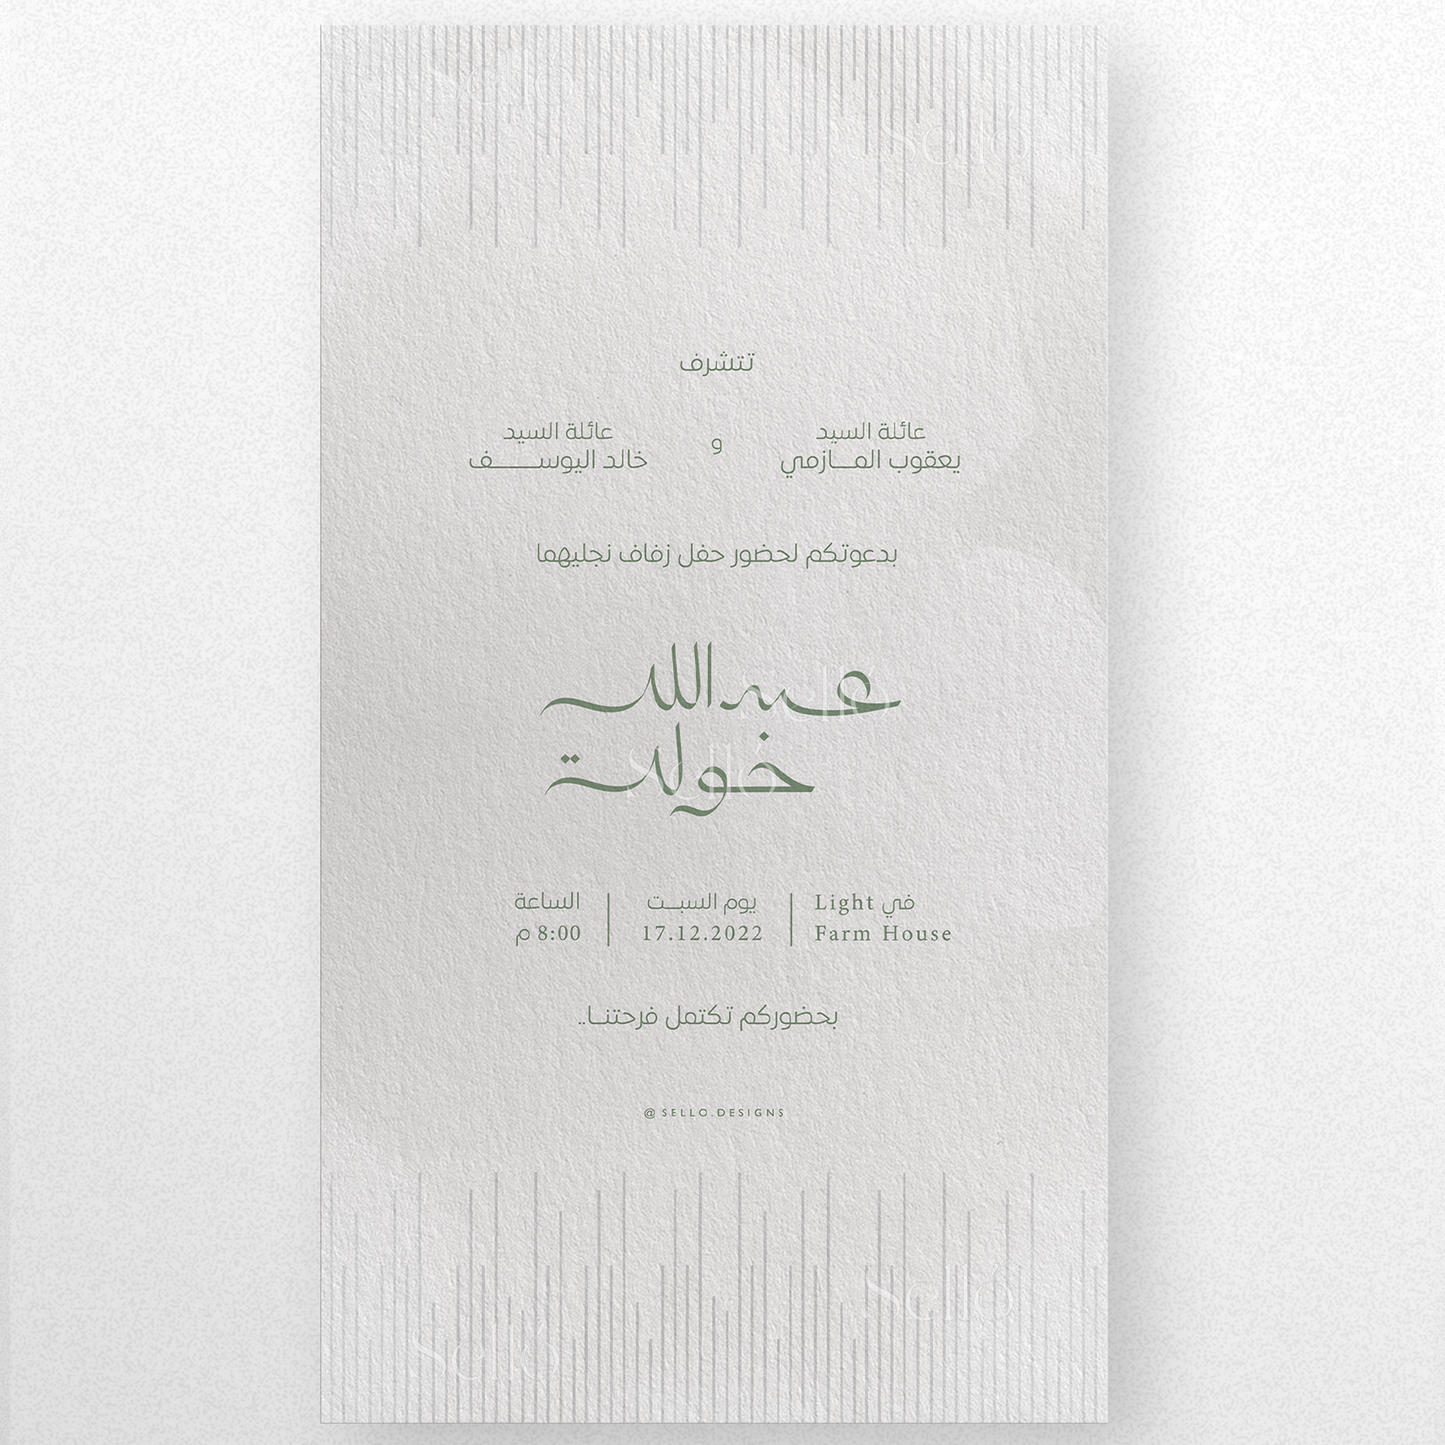 تتشرف
عائلة السيد
يعقوب المـــازمي
و
عائلة السيد
خالد اليوســـــــف
بدعوتكم لحضور حفل زفاف نجليهما
عبدالله
خولة
في Light
Farm House
يوم السبــت
17.12.2022
الساعة
8:00 م
بحضوركم تكتمل فرحتنــا..
@SELLO.DESIGNS
Selló
Selló
Selló
Selló
Selló
Selló